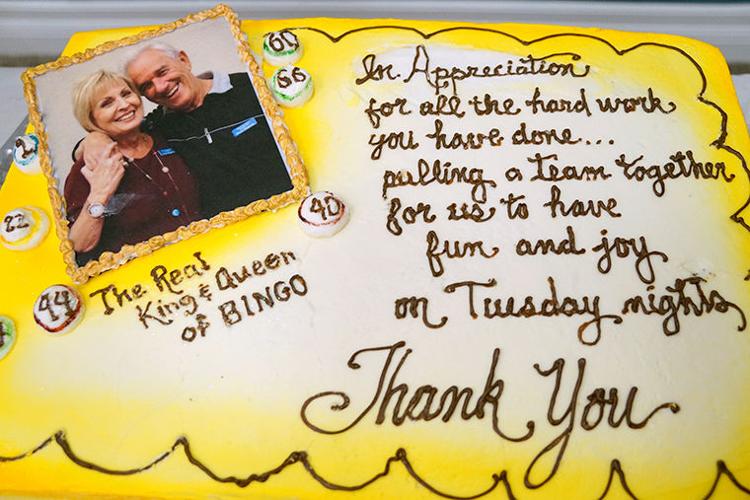 60
66
2
22
44
40
The Real
King & Queen
of BINGO
In Appreciation
for all the hard work
you have done...
pulling a team together
for us to have
fun and joy
on Tuesday nights
Thank You